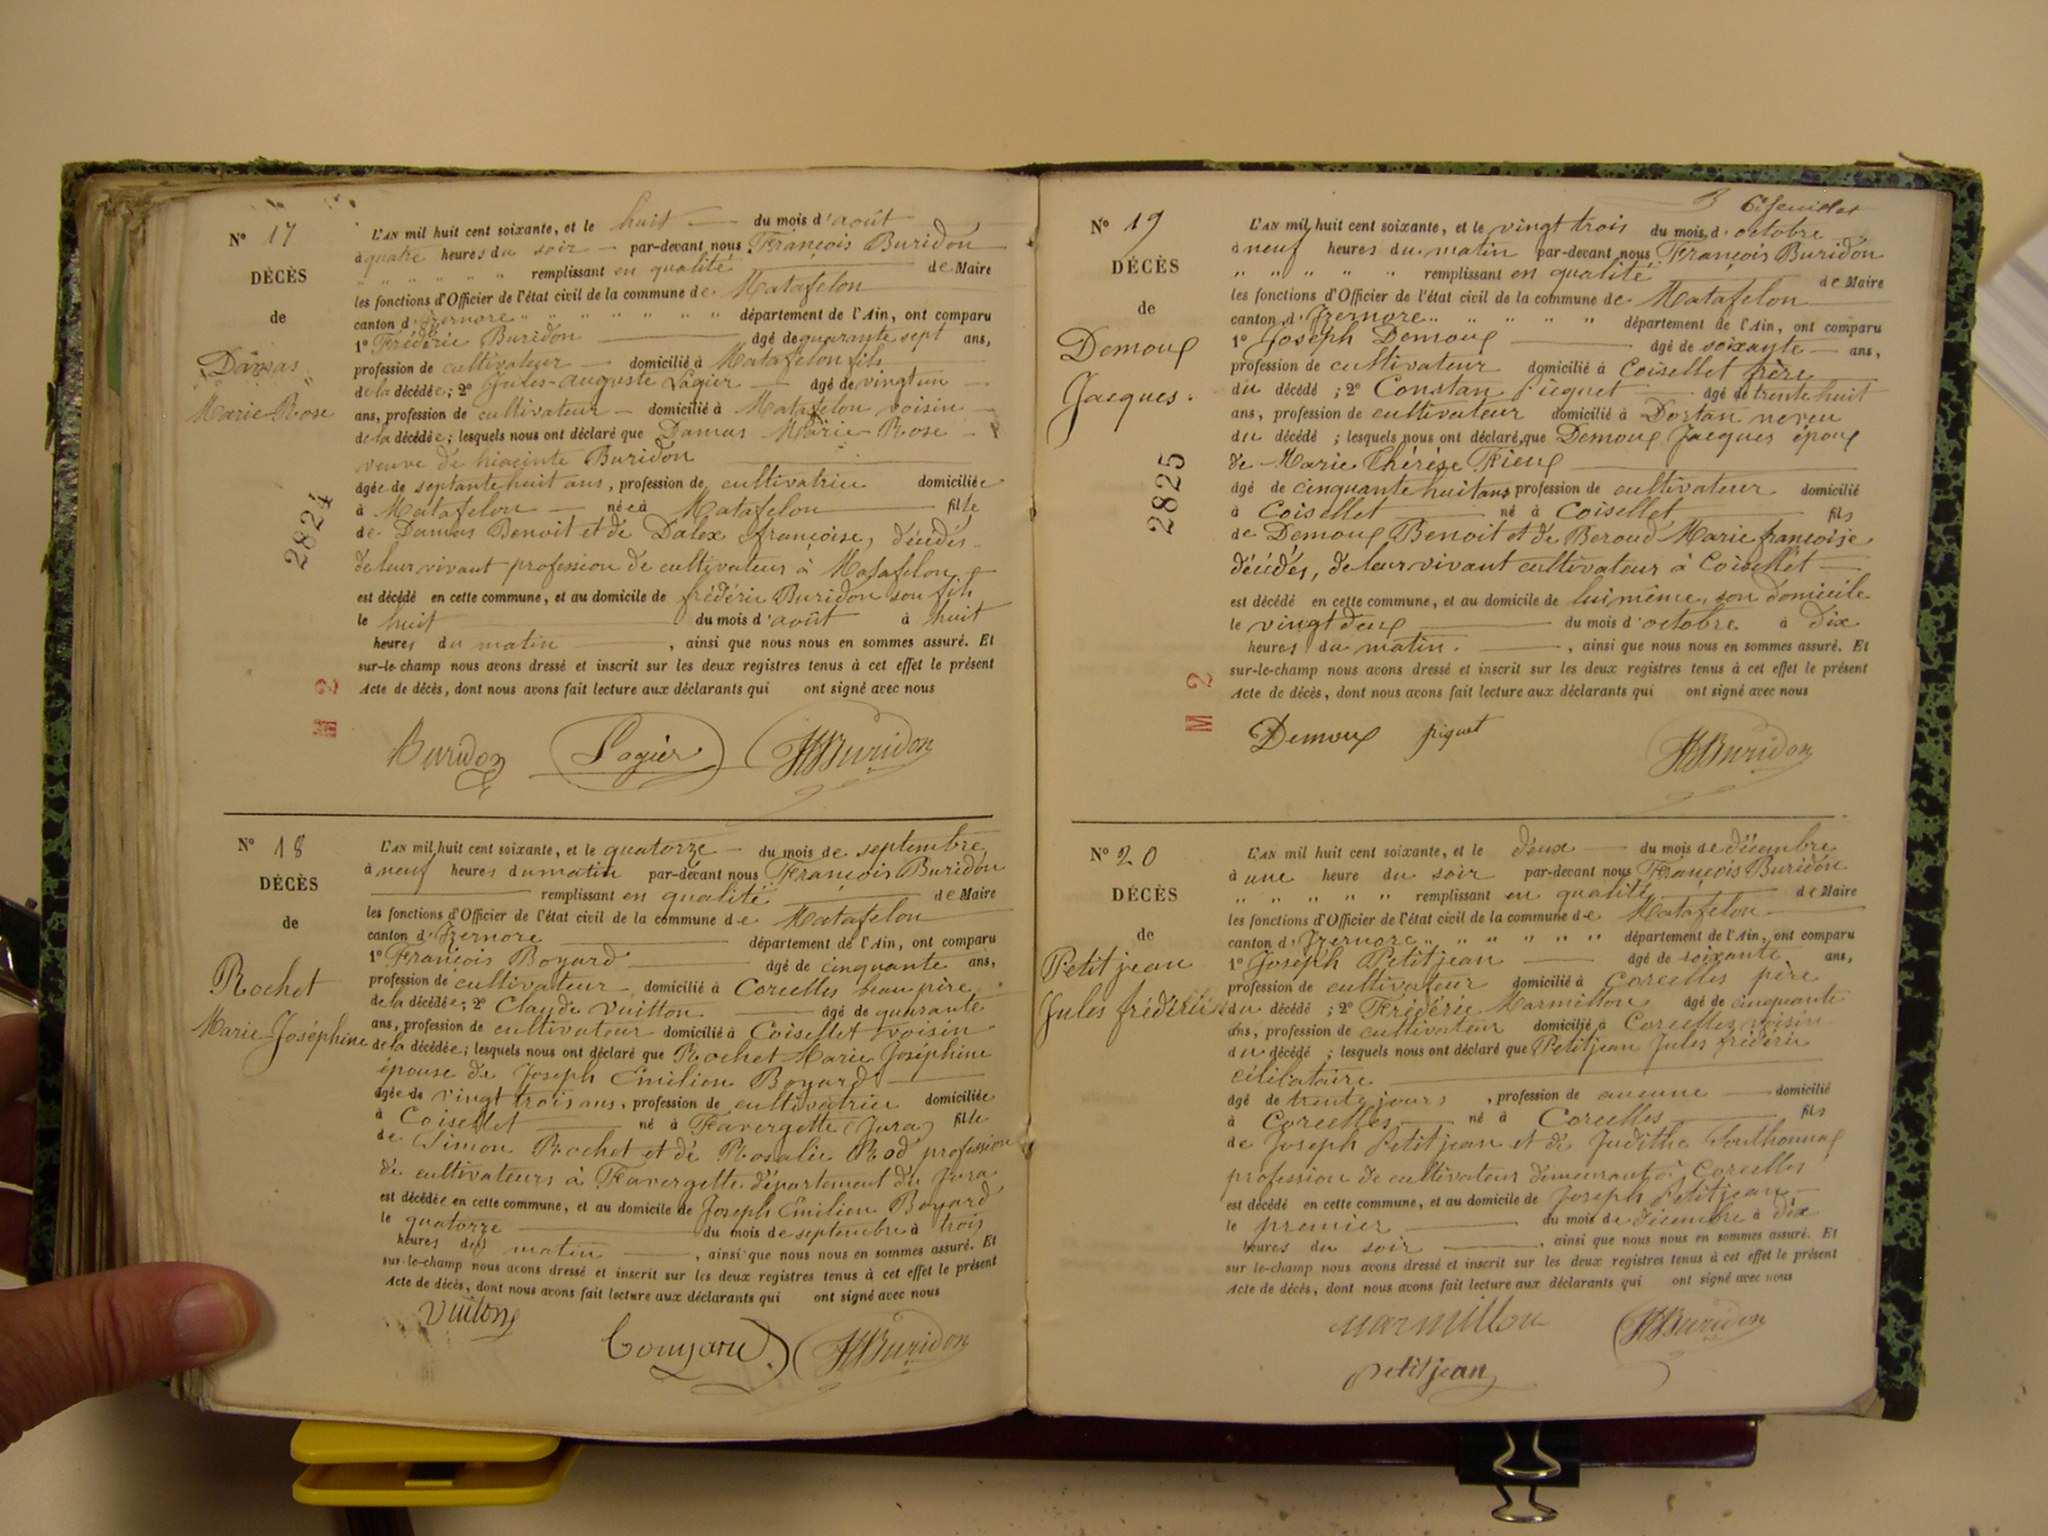 N° 17
DÉCÈS
de
Damas
Marie Rose
2824
M 2
L'AN mil huit cent soixante, et le huit du mois d'août
à quatre heures du soir par-devant nous François Buridon
" " " " " remplissant en qualité de Maire
les fonctions d'Officier de l'état civil de la commune de Matafelon
canton d'Izernore " " " " " " " département de l'Ain, ont comparu
1° Frédéric Buridon âgé de quarante sept ans,
profession de cultivateur domicilié à Matafelon fils
de la décédée; 2° Jules-Auguste Lagier âgé de vingt un
ans, profession de cultivateur domicilié à Matafelon voisin
de la décédée; lesquels nous ont déclaré que Damas Marie Rose
veuve de hiacinte Buridon
âgée de septante huit ans, profession de cultivatrice domiciliée
à Matafelon née à Matafelon fille
de Damas Benoit et de Dalex françoise, décédés
de leur vivant profession de cultivateurs à Matafelon
est décédé en cette commune, et au domicile de frédéric Buridon son fils
le huit du mois d'août à huit
heures du matin, ainsi que nous nous en sommes assuré. Et
sur-le-champ nous avons dressé et inscrit sur les deux registres tenus à cet effet le présent
Acte de décès, dont nous avons fait lecture aux déclarants qui ont signé avec nous
Buridon Lagier Buridon
N° 18
DÉCÈS
de
Rochet
Marie Joséphine
L'AN mil huit cent soixante, et le quatorze du mois de septembre
à neuf heures du matin par-devant nous François Buridon
remplissant en qualité de Maire
les fonctions d'Officier de l'état civil de la commune de Matafelon
canton d'Izernore département de l'Ain, ont comparu
1° François Boyard âgé de cinquante ans,
profession de cultivateur domicilié à Corcelles beau père
de la décédée; 2° Claude Vuitton âgé de quarante
ans, profession de cultivateur domicilié à Coisellet voisin
de la décédée; lesquels nous ont déclaré que Rochet Marie Joséphine
épouse de Joseph Emilien Boyard
âgée de vingt trois ans, profession de cultivatrice domiciliée
à Coisellet né à Favergette (Jura) fille
de Simon Rochet et de Rosalie Rod profession
de cultivateurs à Favergette département du Jura
est décédée en cette commune, et au domicile de Joseph Emilien Boyard
le quatorze du mois de septembre à trois
heures du matin, ainsi que nous nous en sommes assuré. Et
sur-le-champ nous avons dressé et inscrit sur les deux registres tenus à cet effet le présent
Acte de décès, dont nous avons fait lecture aux déclarants qui ont signé avec nous
Vuiton Bouyard Buridon
6e feuillet
N° 19
DÉCÈS
de
Demoux
Jacques.
2825
M 2
L'AN mil huit cent soixante, et le vingt trois du mois d'octobre
à neuf heures du matin par-devant nous François Buridon
" " " " " remplissant en qualité de Maire
les fonctions d'Officier de l'état civil de la commune de Matafelon
canton d'Izernore " " " " " département de l'Ain, ont comparu
1° Joseph Demoux âgé de soixante ans,
profession de cultivateur domicilié à Coisellet frère
du décédé; 2° Constan Picquet âgé de trente huit
ans, profession de cultivateur domicilié à Dortan neveu
du décédé; lesquels nous ont déclaré que Demoux Jacques époux
de Marie Thérèse Fieux
âgé de cinquante huit ans profession de cultivateur domicilié
à Coisellet né à Coisellet fils
de Demoux Benoit et de Beroud Marie françoise
décédés, de leur vivant cultivateur à Coisellet
est décédé en cette commune, et au domicile de lui même, son domicile
le vingt deux du mois d'octobre à dix
heures du matin., ainsi que nous nous en sommes assuré. Et
sur-le-champ nous avons dressé et inscrit sur les deux registres tenus à cet effet le présent
Acte de décès, dont nous avons fait lecture aux déclarants qui ont signé avec nous
Demoux piquet Buridon
N° 20
DÉCÈS
de
Petitjean
Jules frédéric
L'AN mil huit cent soixante, et le deux du mois de décembre
à une heure du soir par-devant nous François Buridon
" " " " " remplissant en qualité de Maire
les fonctions d'Officier de l'état civil de la commune de Matafelon
canton d'Izernore " " " " " " département de l'Ain, ont comparu
1° Joseph Petitjean âgé de soixante ans,
profession de cultivateur domicilié à Corcelles père
du décédé; 2° Frédéric Marmillon âgé de cinquante
ans, profession de cultivateur domicilié à Corcelles voisin
du décédé; lesquels nous ont déclaré que Petitjean Jules frédéric
célibataire
âgé de trente jours, profession de aucune domicilié
à Corcelles né à Corcelles fils
de Joseph Petitjean et de Judithe Southonnax
profession de cultivateur demeurant à Corcelles
est décédé en cette commune, et au domicile de Joseph Petitjean
le premier du mois de décembre à dix
heures du soir, ainsi que nous nous en sommes assuré. Et
sur-le-champ nous avons dressé et inscrit sur les deux registres tenus à cet effet le présent
Acte de décès, dont nous avons fait lecture aux déclarants qui ont signé avec nous
Marmillon Buridon
petitjean